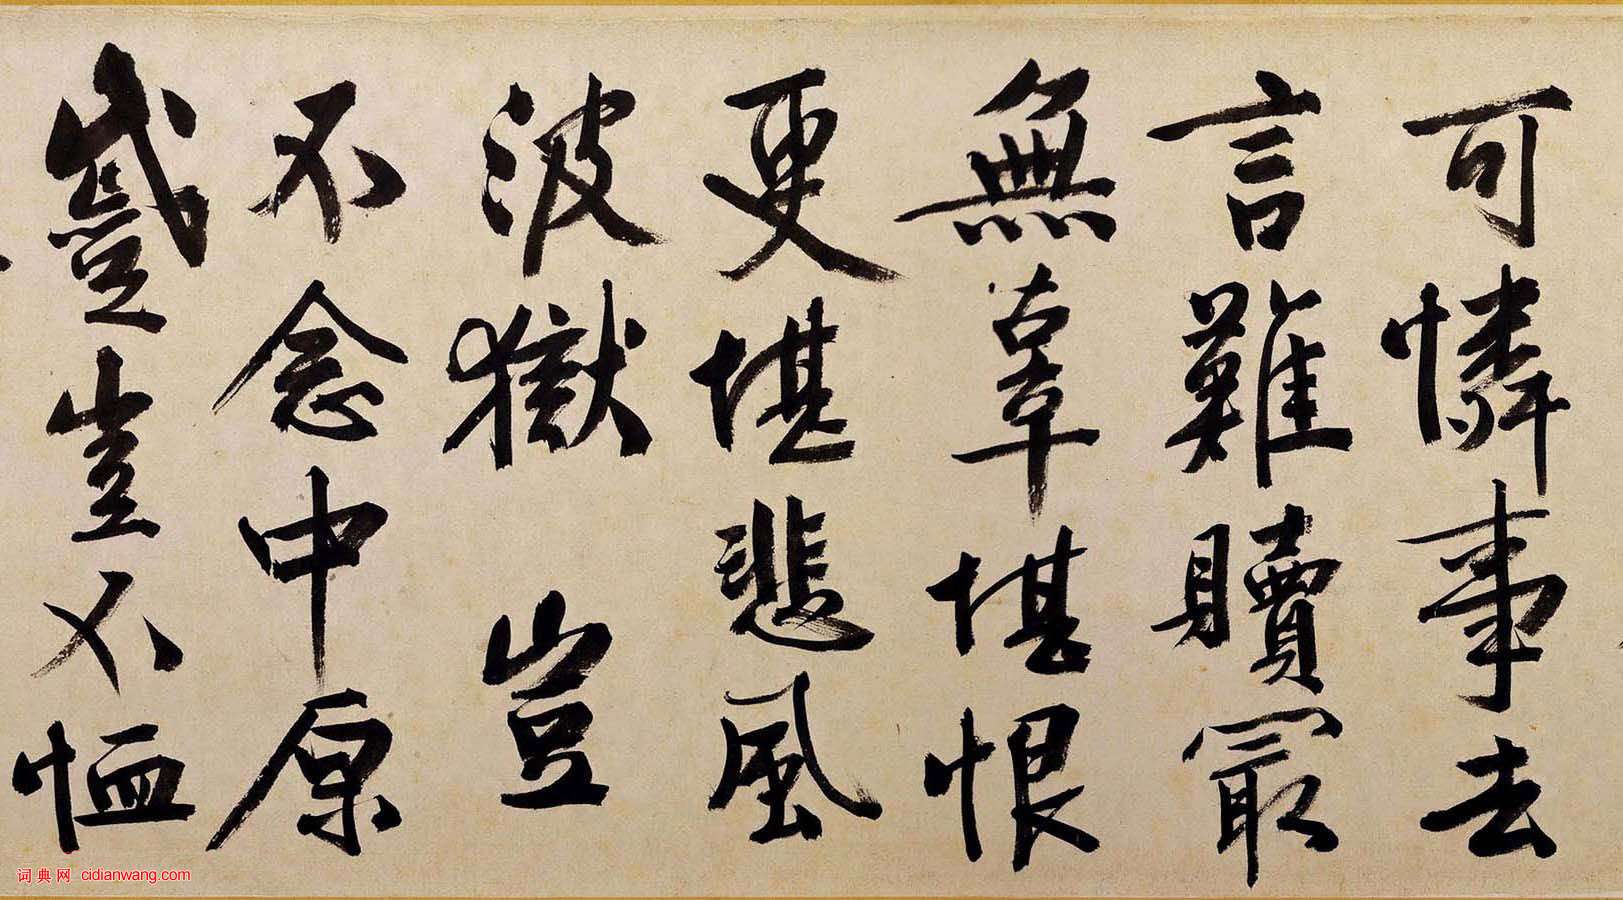 可憐事去
言難贖最
無辜堪恨
更堪悲風
波獄 豈
不念中原
蹙豈不恤
词典网 cidianwang.com